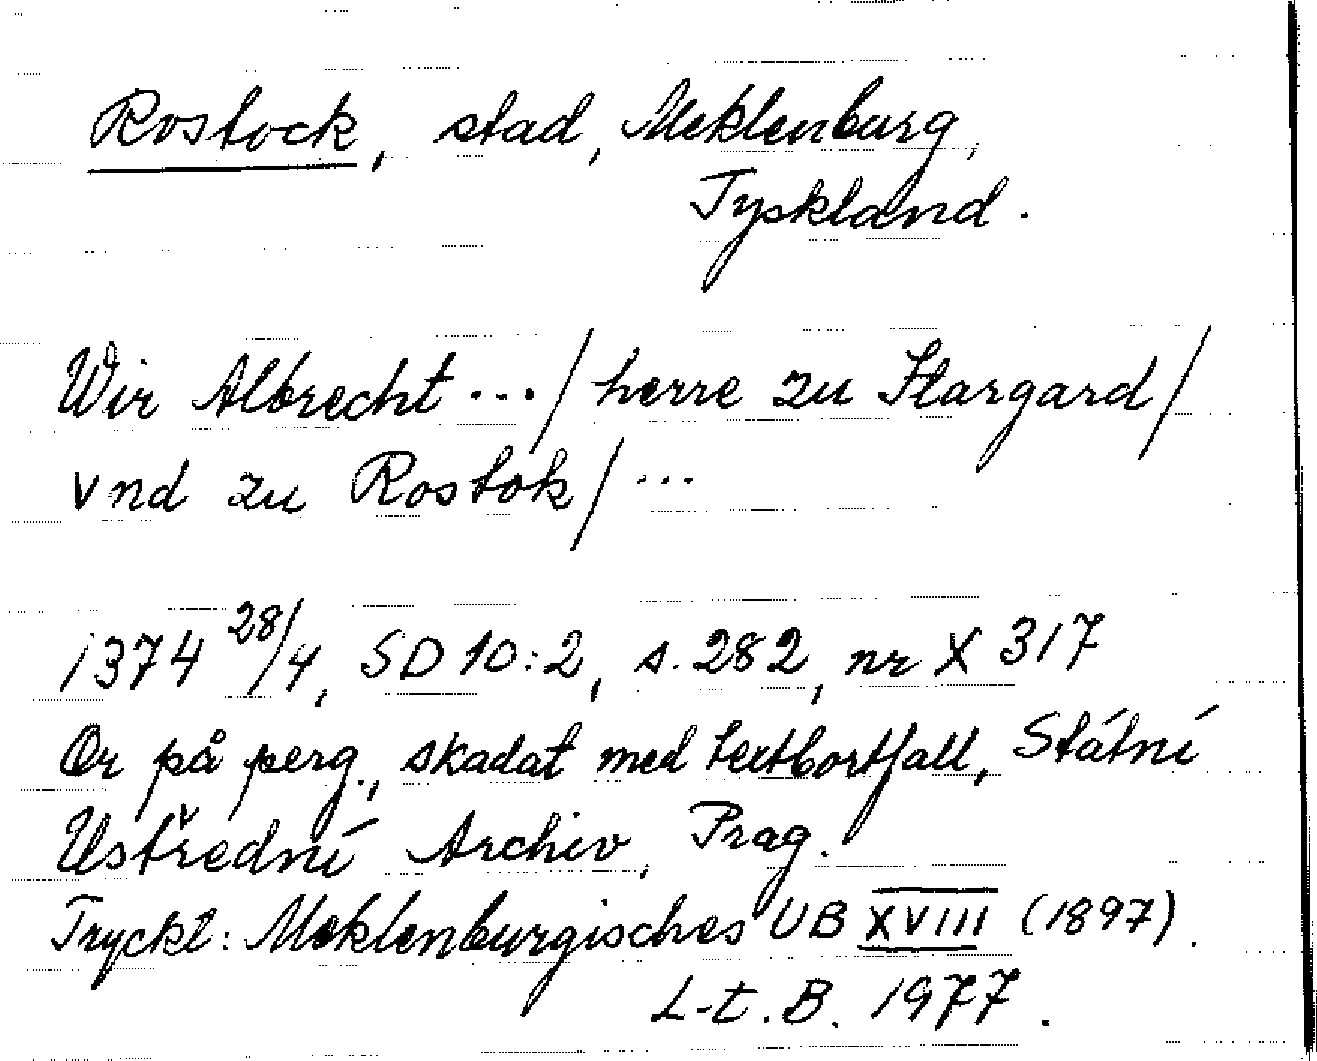 Rostock, stad, Meklenburg,
Tyskland.
Wir Albrecht .../ herre zu Stargard/
vnd zu Rostok/ ...
1374 28/4, SD 10:2, s. 282, nr X 317
Or på perg., skadat med textbortfall, Státní
Ustředni Archiv, Prag.
Tryckt: Meklenburgisches UB XVIII (1897).
L-t. B. 1977.